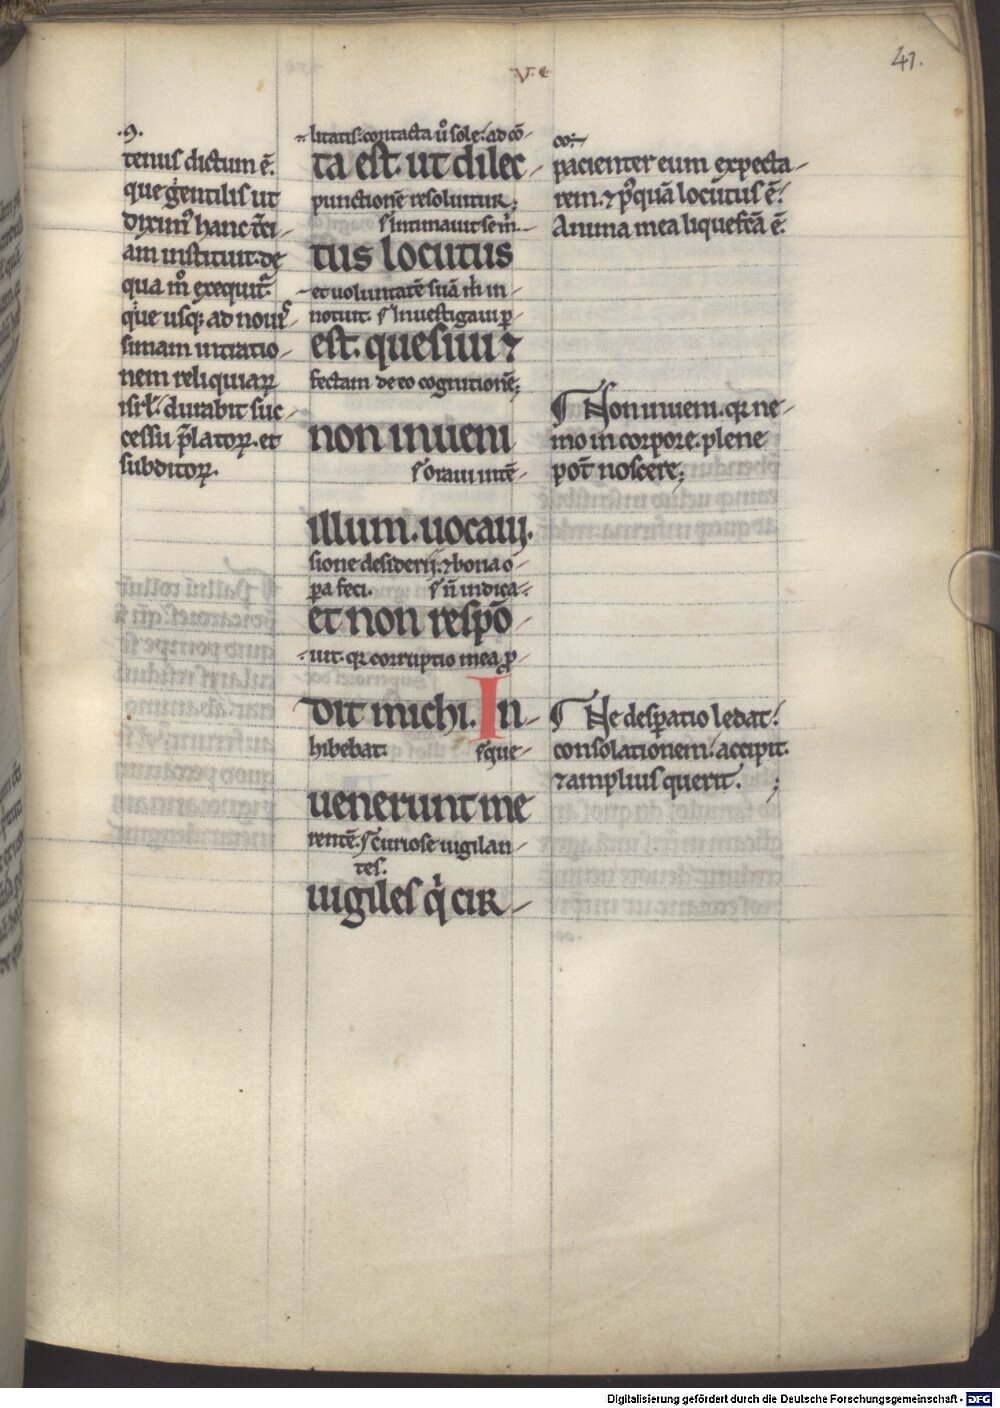 41.
V. C
.9.
tenus dictum ē.
que gentilis ut
diximꝰ hanc
am instituit. de
qua m̊ exequit᷑.
que usqꝫ ad nouis
simam intratio-
nem reliquiaꝝ
isrl̄. durabit suc-
cessu p̄latoꝝ. et
subditoꝝ.
litatis. contacta ů sole. ad cō-
ta est. ut dilec-
punctionē resoluitur;
s. intimauit se m̄.
tus locutus
et uoluntatē suā in in-
notuit. s. Inuestigaui ꝑ-
est. quesiui ⁊
fectam de eo cognitionē;
non inueni
s. oraui intē-
illum. uocaui.
sione desiderij. ⁊ bona o-
ꝑa feci. s. n̄ indica-
et non respō-
uit. qꝛ corruptio mea ꝓ-
dit michi. In-
hibebat. s. que-
uenerunt me
rentē. s. curiose uigilan-
tes.
uigiles q̇ cir-
co.
pacienter eum expecta-
rem. ⁊ pꝰquā locutus ē.
Anima mea liquefcā ē.
¶ Non inueni. qꝛ ne-
mo in corpore. plene
pot̄ noscere;
¶ Ne desꝑatio ledat.
consolationem. accipit.
⁊ amplius querit. ;
Digitalisierung gefördert durch die Deutsche Forschungsgemeinschaft - DFG